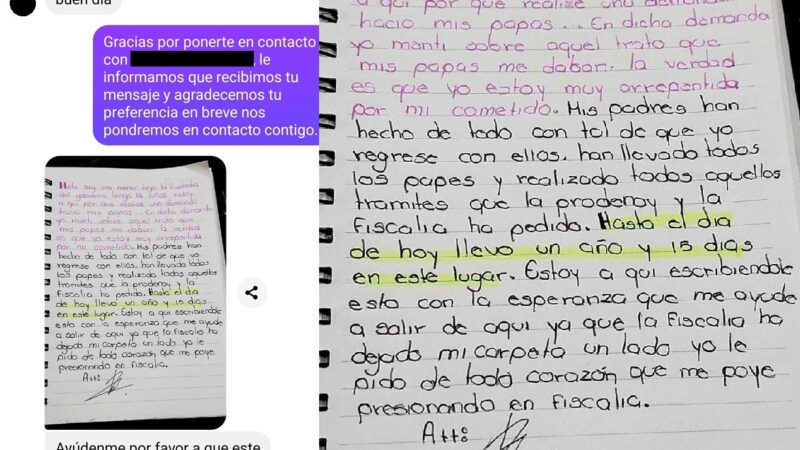 buen dia
Gracias por ponerte en contacto
con , le
informamos que recibimos tu
mensaje y agradecemos tu
preferencia en breve nos
pondremos en contacto contigo.
Hola soy una menor bajo la custodia
del gobierno tengo años, estoy
a qui por que realize una demanda
hacio mis papas... En dicha demanda
yo manti sobre aquel trato que
mis papas me daban. la verdad
es que yo estoy muy arrepentida
por mi cometido. Mis padres han
hecho de todo con tal de que yo
regrese con ellos. han llevado todos
los papes y realizado todos aquellos
tramites que la prodenay y la
fiscalia ha pedido. Hasta el dia
de hoy llevo un año y 15 dias
en este lugar. Estoy a qui escribiendole
esto con la esperanza que me ayude
a salir de aqui ya que la fiscalia ha
dejado mi carpeta un lado yo le
pido de todo corazón que me poye
presionando en fiscalia.
Att:
Ayúdenme por favor a que este
a qui por que realize una demanda
hacio mis papas... En dicha demanda
yo manti sobre aquel trato que
mis papas me daban. la verdad
es que yo estoy muy arrepentida
por mi cometido. Mis padres han
hecho de todo con tal de que yo
regrese con ellos. han llevado todos
los papes y realizado todos aquellos
tramites que la prodenay y la
fiscalia ha pedido. Hasta el dia
de hoy llevo un año y 15 dias
en este lugar. Estoy a qui escribiendole
esto con la esperanza que me ayude
a salir de aqui ya que la fiscalia ha
dejado mi carpeta un lado yo le
pido de todo corazón que me poye
presionando en fiscalia.
Att: